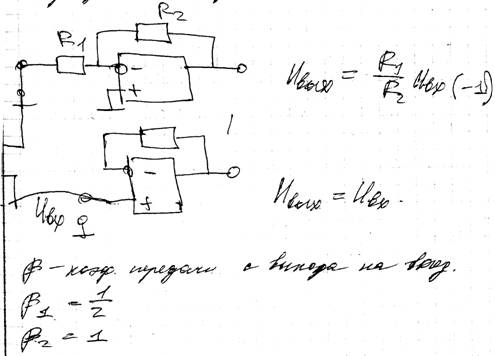 R₂
R₁
−
+
Uвых = R₁/R₂ Uвх (-1)
−
+
Uвх
Uвых = Uвх.
β - коэф. передачи с выхода на вход.
β₁ = 1/2
β₂ = 1